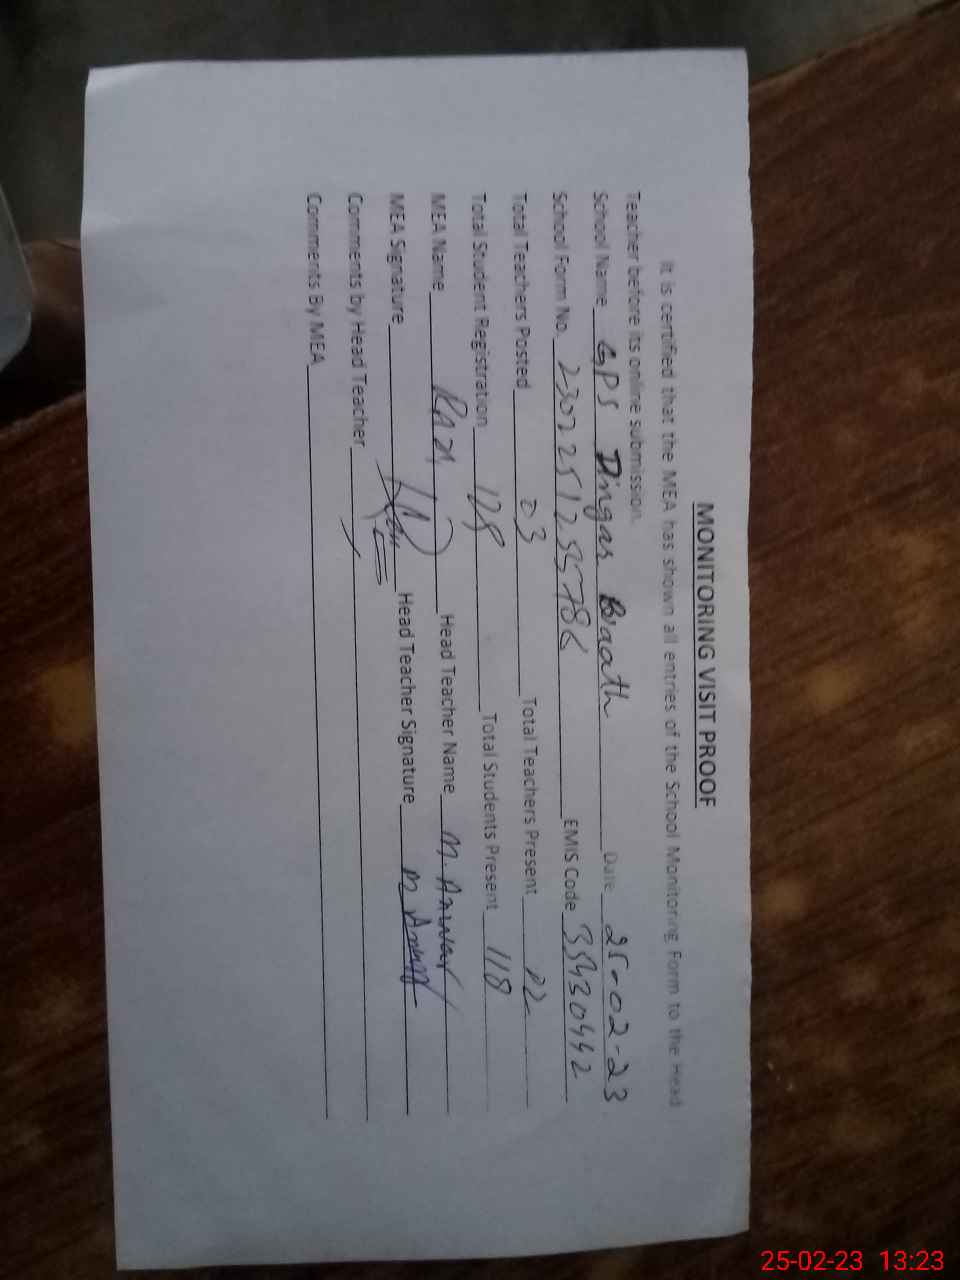 MONITORING VISIT PROOF
It is certified that the MEA has shown all entries of the School Monitoring Form to the Head
Teacher before its online submission.
School Name GPS Dingas Baath Date 25-02-23
School Form No. EMIS Code 35430442
Total Teachers Posted 03 Total Teachers Present 02
Total Student Registration 128 Total Students Present 118
MEA Name Head Teacher Name M. Anwar
MEA Signature Head Teacher Signature M Anwar
Comments by Head Teacher
Comments By MEA
25-02-23 13:23